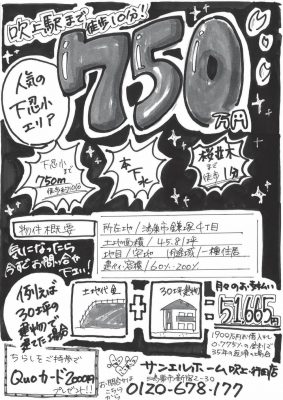 吹上駅まで徒歩10分!
人気の
下忍小
エリア
750
万円
下忍小まで
750m
本下水
桜並木
まで
徒歩1分
物件概要
所在地/鴻巣市鎌塚4丁目
土地面積/45.81坪
地目/宅地 用途域/一種住居
建ぺい容積/60%・200%
気になったら
今すぐお問合せ
下さい!
例えば
30坪の
建物で
建てた場合
土地代金
+
30坪建物
=
月々のお支払い
51,665円
1900万円お借入れし
35年の返済の場合
ちらしをご持参で
Quoカード2000円
プレゼント!!
お問合せは
こちら
から
サンエルホーム吹上本町店
0120-678-177